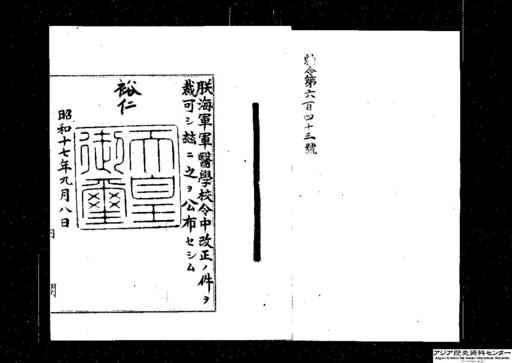 勅令第六百四十三號
朕海軍軍醫學校令中改正ノ件ヲ
裁可シ玆ニ之ヲ公布セシム
裕仁
天皇
御璽
昭和十七年九月八日
アジア歴史資料センター
Japan Center for Asian Historical Records